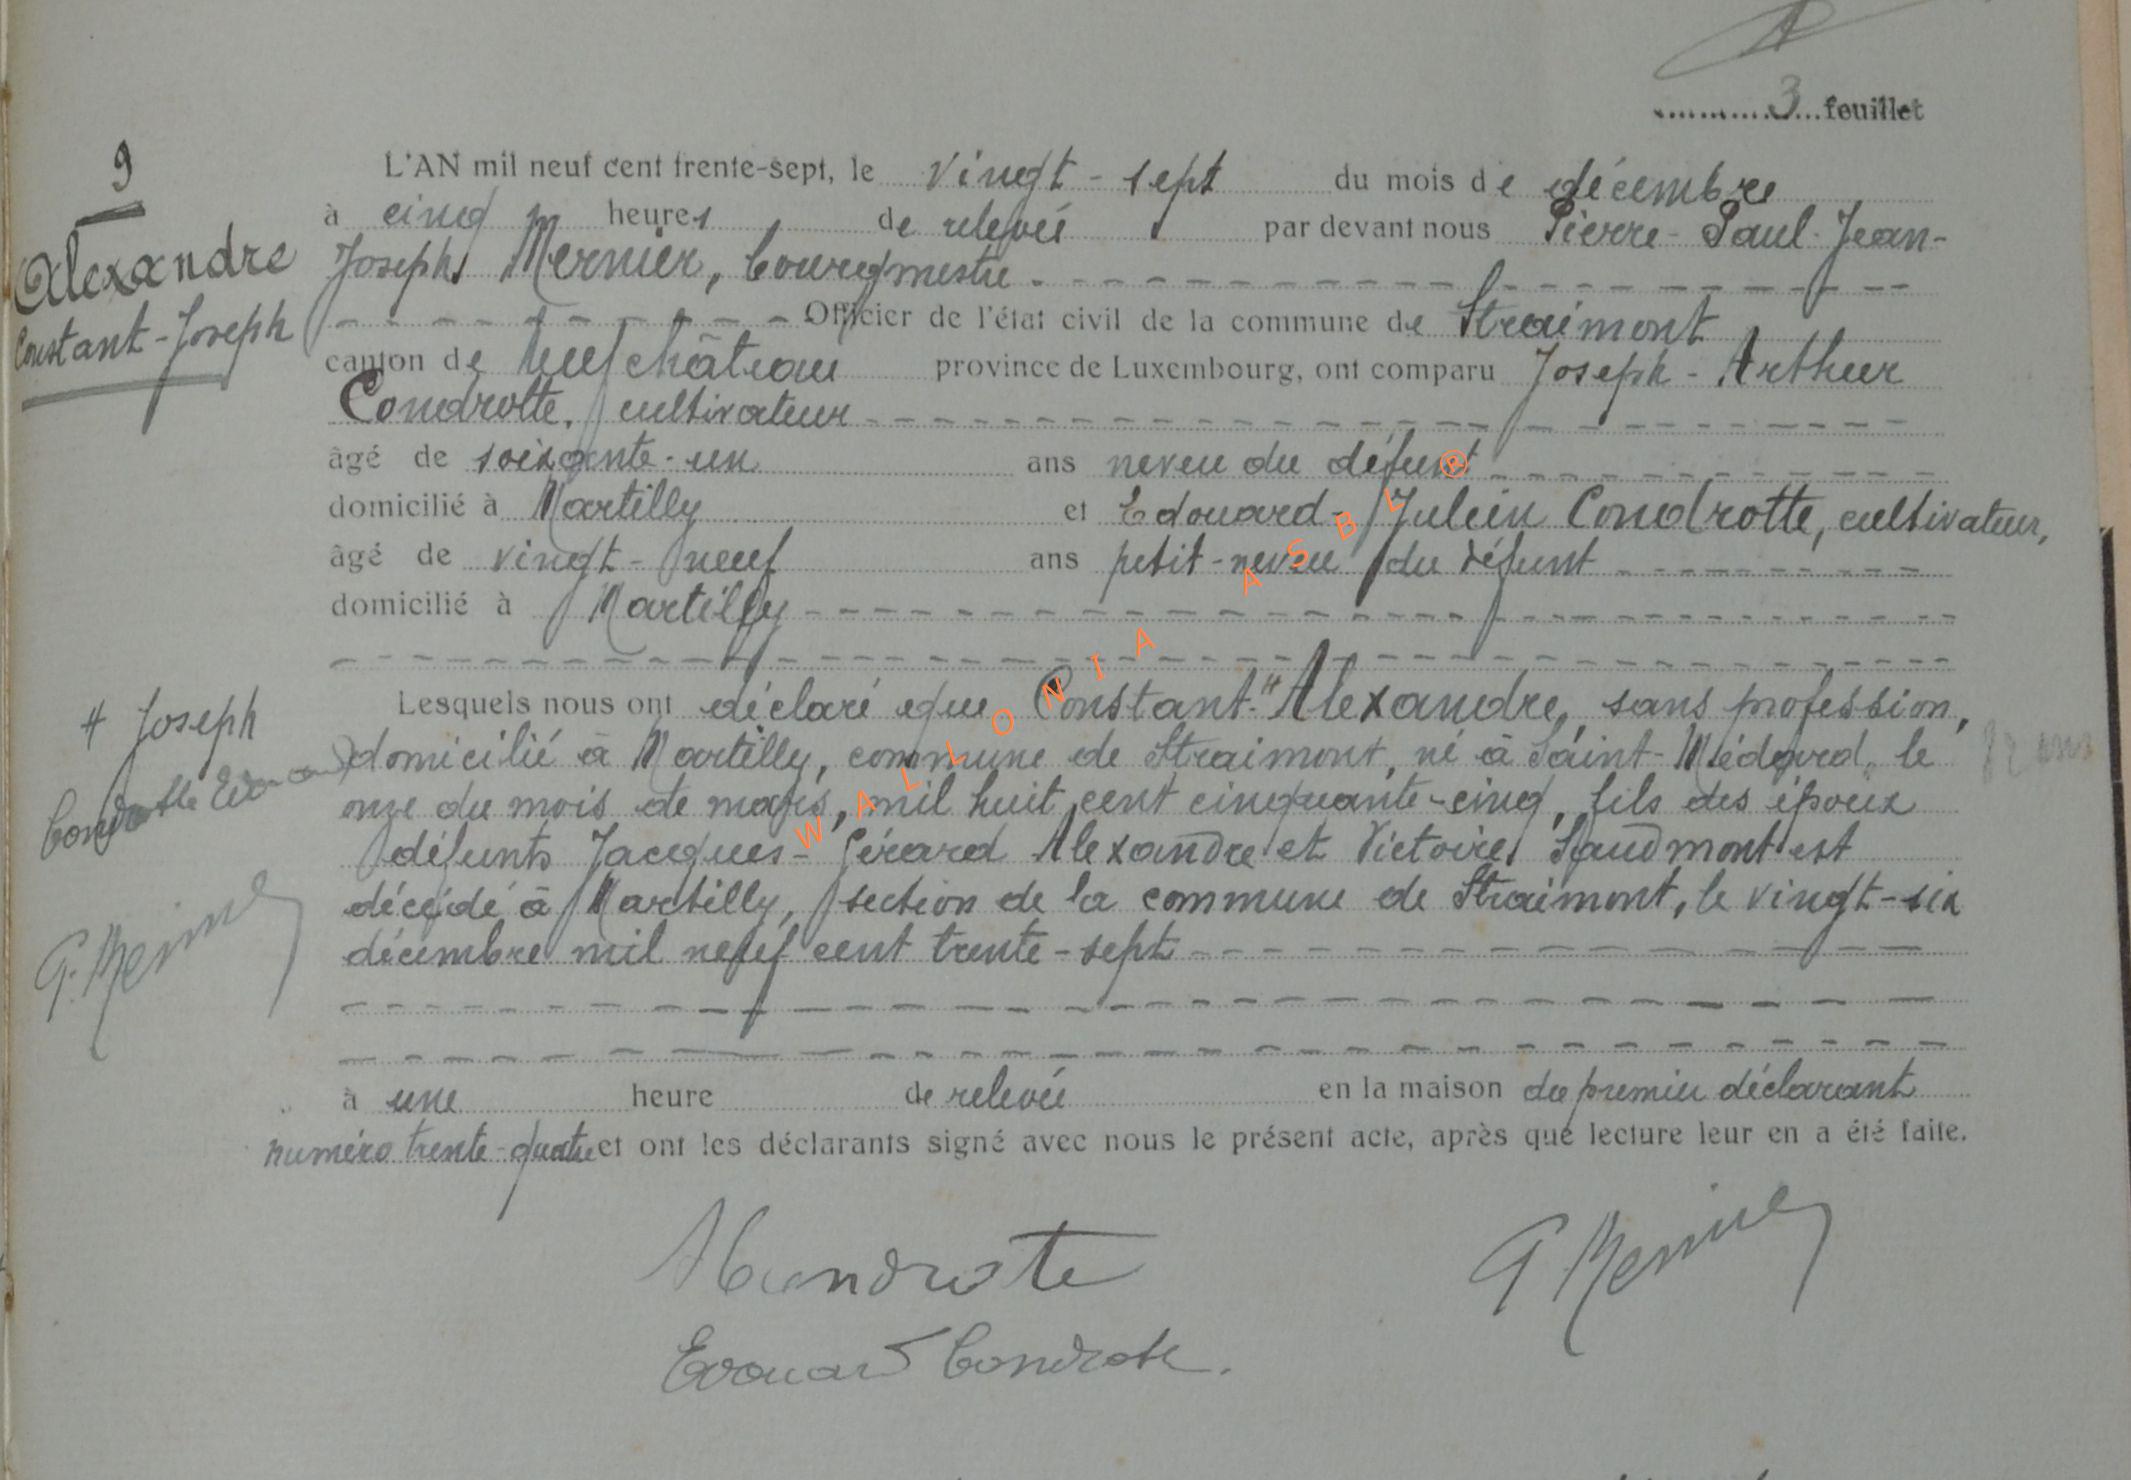 3 feuillet
9
Alexandre
Constant-Joseph
L'AN mil neuf cent trente-sept, le vingt-sept du mois de décembre
à cinq heures de relevée par devant nous Pierre-Paul-Jean-
Joseph Mernier, bourgmestre
Officier de l'état civil de la commune de Straimont
canton de Neufchâteau province de Luxembourg, ont comparu Joseph-Arthur
Condrotte, cultivateur
âgé de soixante-un ans neveu du défunt
domicilié à Martilly et Edouard-Julien Condrotte, cultivateur,
âgé de vingt-neuf ans petit-neveu du défunt
domicilié à Martilly
Lesquels nous ont déclaré que Constant-# Alexandre, sans profession,
# Joseph
domicilié à Martilly, commune de Straimont, né à Saint-Médard, le
82 ans
Condrotte Edouard
onze du mois de mars, mil huit cent cinquante-cinq, fils des époux
défunts Jacques-Gérard Alexandre et Victoire est
décédé à Martilly, section de la commune de Straimont, le vingt-six
P. Mernier
décembre mil neuf cent trente-sept
à une heure de relevée en la maison du premier déclarant
numéro trente-quatre et ont les déclarants signé avec nous le présent acte, après que lecture leur en a été faite.
P. Mernier
Edouard Condrotte
WALLONIA ASBL ®